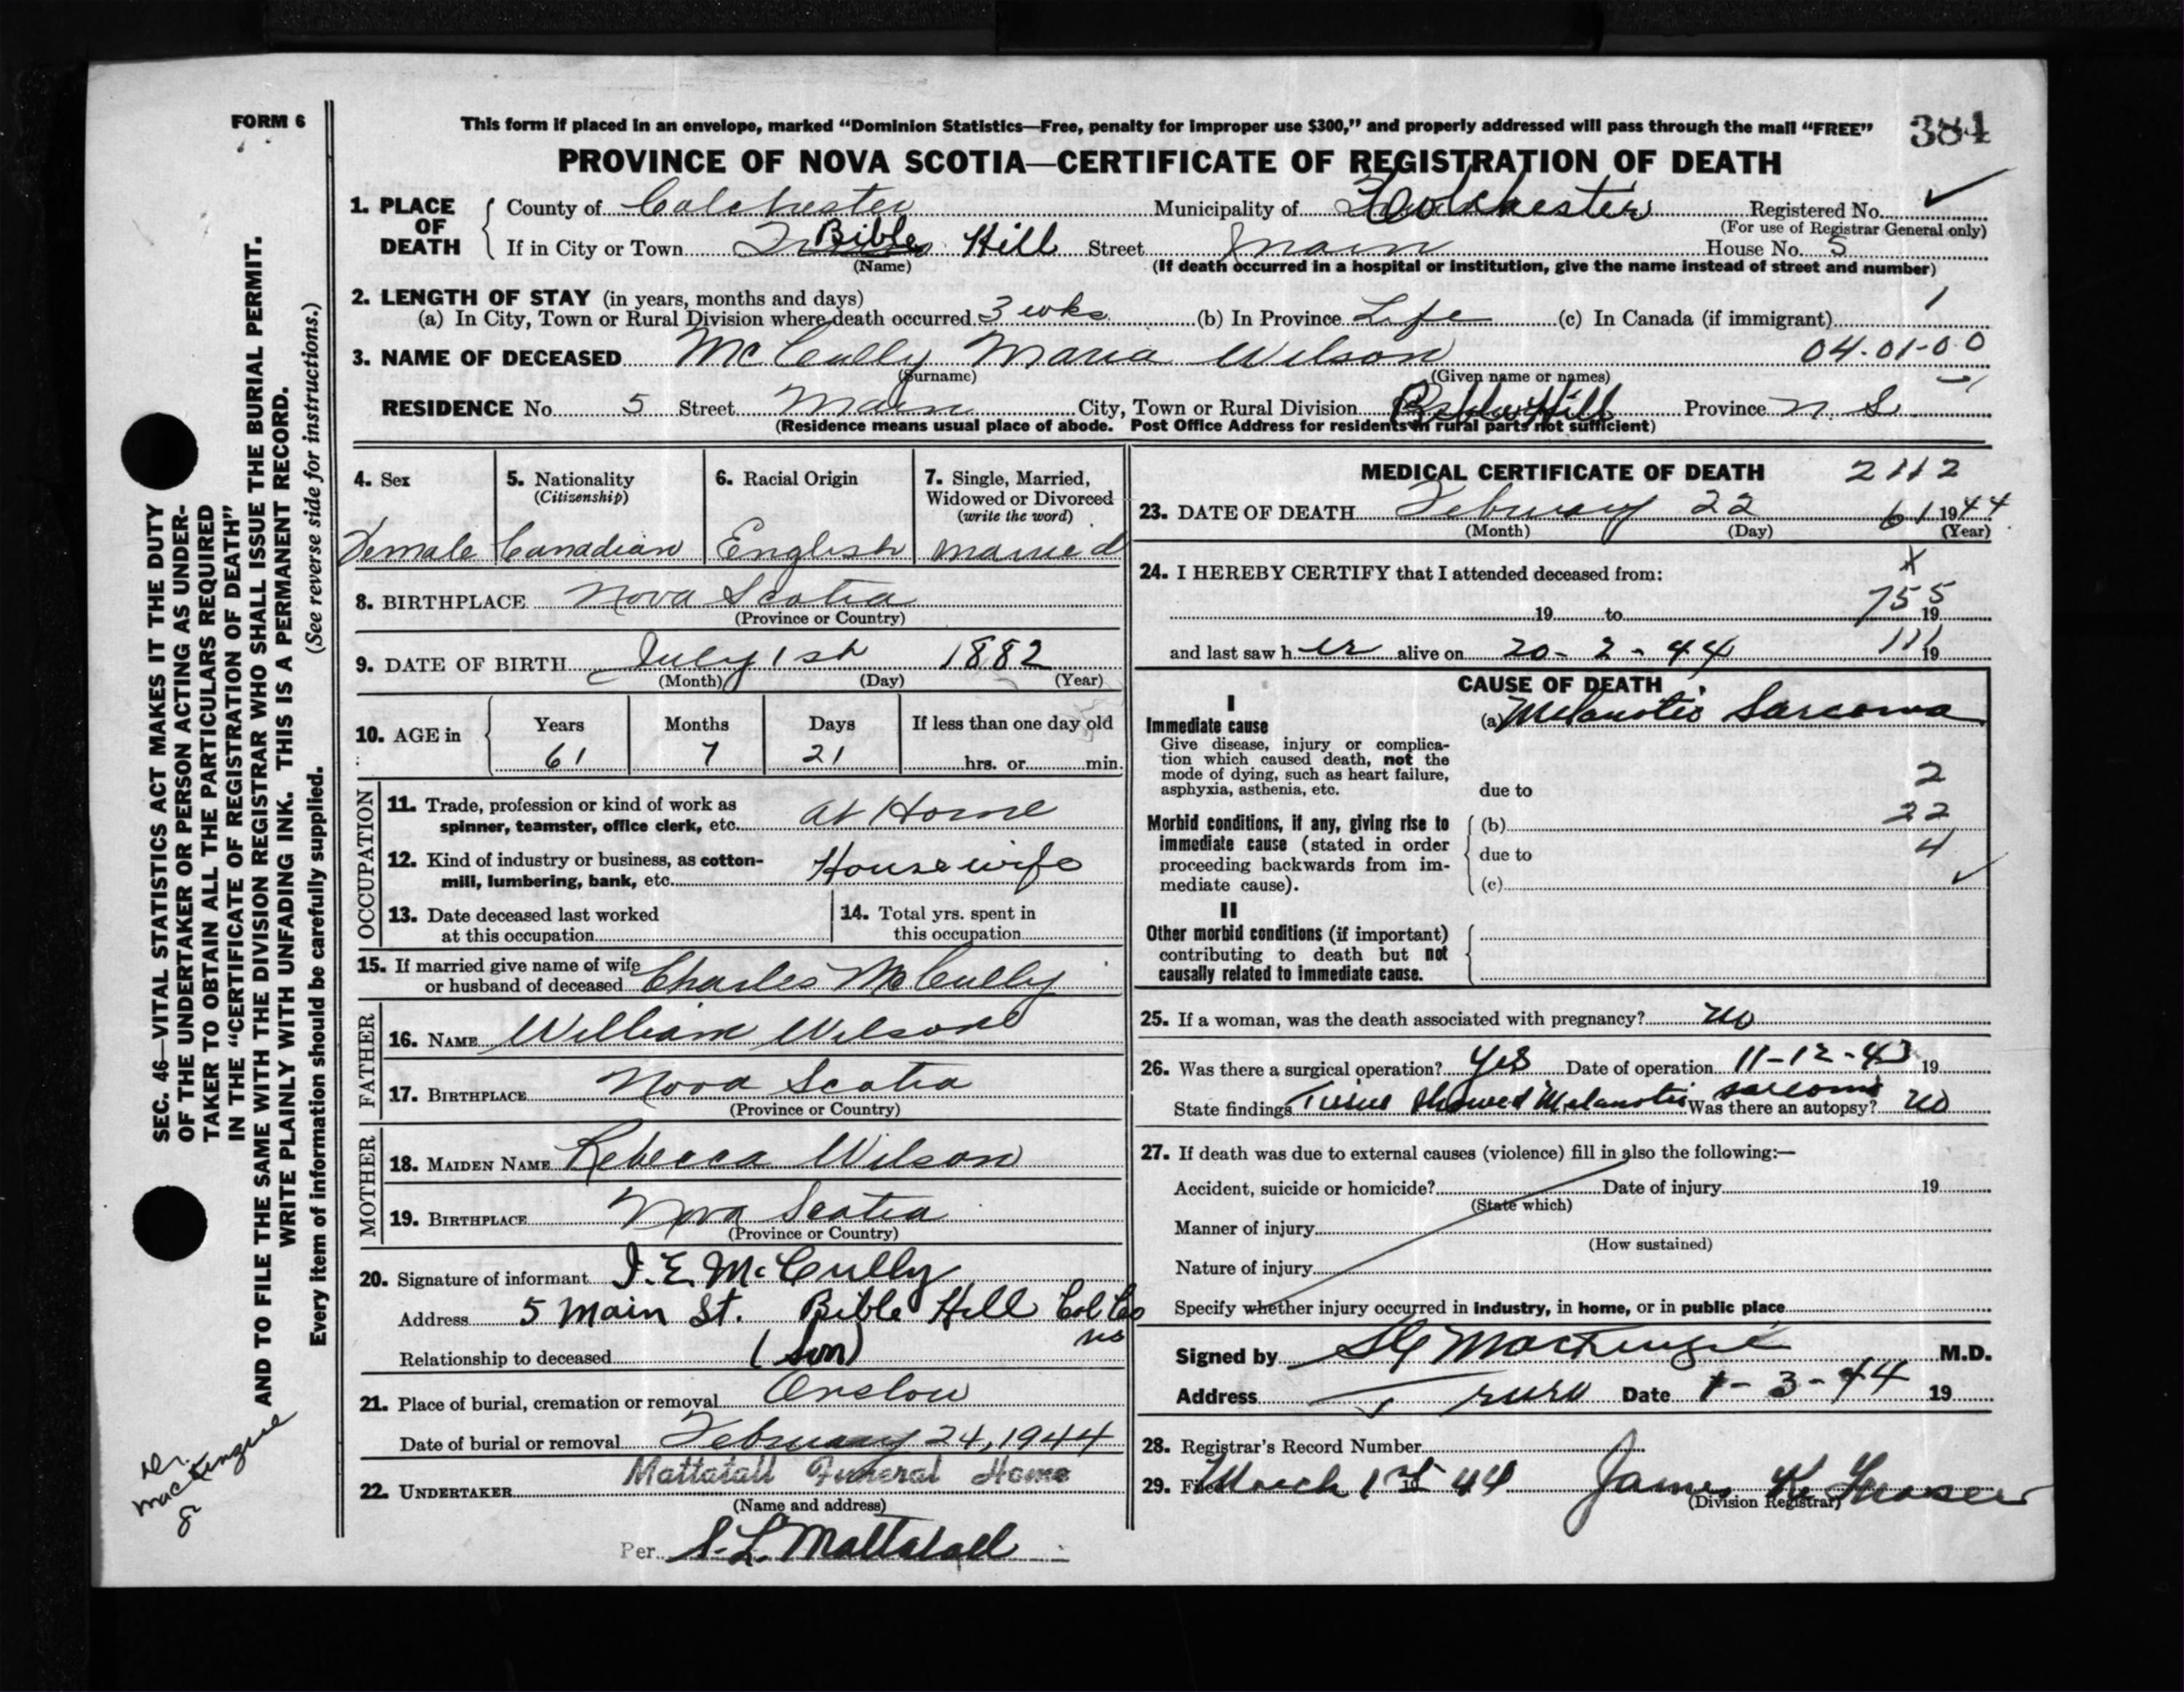 FORM 6
This form if placed in an envelope, marked “Dominion Statistics—Free, penalty for improper use $300,” and properly addressed will pass through the mail “FREE”
384
PROVINCE OF NOVA SCOTIA—CERTIFICATE OF REGISTRATION OF DEATH
1. PLACE OF DEATH
County of Colchester Municipality of Colchester Registered No. ✓
(For use of Registrar General only)
If in City or Town Bible Hill Street Main House No. 5
(Name) (If death occurred in a hospital or institution, give the name instead of street and number)
2. LENGTH OF STAY (in years, months and days)
1
(a) In City, Town or Rural Division where death occurred 3 wks (b) In Province Life (c) In Canada (if immigrant)
3. NAME OF DECEASED McCully Maria Wilson 04-01-00
(Surname) (Given name or names)
RESIDENCE No. 5 Street Main City, Town or Rural Division Bible Hill Province N S.
(Residence means usual place of abode. Post Office Address for residents in rural parts not sufficient)
4. Sex
Female
5. Nationality
(Citizenship)
Canadian
6. Racial Origin
English
7. Single, Married,
Widowed or Divorced
(write the word)
Married
8. BIRTHPLACE Nova Scotia
(Province or Country)
9. DATE OF BIRTH July 1st 1882
(Month) (Day) (Year)
10. AGE in
Years Months Days If less than one day old
61 7 21 hrs. or min.
OCCUPATION
11. Trade, profession or kind of work as
spinner, teamster, office clerk, etc. at Home
12. Kind of industry or business, as cotton-
mill, lumbering, bank, etc. Housewife
13. Date deceased last worked
at this occupation
14. Total yrs. spent in
this occupation
15. If married give name of wife
or husband of deceased Charles McCully
FATHER
16. NAME William Wilson
17. BIRTHPLACE Nova Scotia
(Province or Country)
MOTHER
18. MAIDEN NAME Rebecca Wilson
19. BIRTHPLACE Nova Scotia
(Province or Country)
20. Signature of informant I. E. McCully
Address 5 Main St. Bible Hill Col Co
NS
Relationship to deceased (Son)
21. Place of burial, cremation or removal Onslow
Date of burial or removal February 24, 1944
22. UNDERTAKER Mattatall Funeral Home
(Name and address)
Per S. L. Mattatall
MEDICAL CERTIFICATE OF DEATH 2112
23. DATE OF DEATH February 22 61 1944
(Month) (Day) (Year)
24. I HEREBY CERTIFY that I attended deceased from: X
19 to 755 19
and last saw her alive on 20-2-44 111 19
CAUSE OF DEATH
I
Immediate cause
Give disease, injury or complica-
tion which caused death, not the
mode of dying, such as heart failure,
asphyxia, asthenia, etc.
(a) Melanotic Sarcoma
2
due to
22
Morbid conditions, if any, giving rise to
immediate cause (stated in order
proceeding backwards from im-
mediate cause).
(b)
due to 4
(c) ✓
II
Other morbid conditions (if important)
contributing to death but not
causally related to immediate cause.
25. If a woman, was the death associated with pregnancy? No
26. Was there a surgical operation? Yes Date of operation 11-12-43 19
State findings Tissue showed Melanotic sarcoma Was there an autopsy? No
27. If death was due to external causes (violence) fill in also the following:—
Accident, suicide or homicide? Date of injury 19
(State which)
Manner of injury
(How sustained)
Nature of injury
Specify whether injury occurred in industry, in home, or in public place
Signed by MacKenzie M.D.
Address Truro Date 1-3-44 19
28. Registrar's Record Number
29. Filed March 1st 19 44 James K. Fraser
(Division Registrar)
SEC. 46—VITAL STATISTICS ACT MAKES IT THE DUTY
OF THE UNDERTAKER OR PERSON ACTING AS UNDER-
TAKER TO OBTAIN ALL THE PARTICULARS REQUIRED
IN THE “CERTIFICATE OF REGISTRATION OF DEATH”
AND TO FILE THE SAME WITH THE DIVISION REGISTRAR WHO SHALL ISSUE THE BURIAL PERMIT.
WRITE PLAINLY WITH UNFADING INK. THIS IS A PERMANENT RECORD.
Every item of information should be carefully supplied. (See reverse side for instructions.)
Dr.
MacKenzie